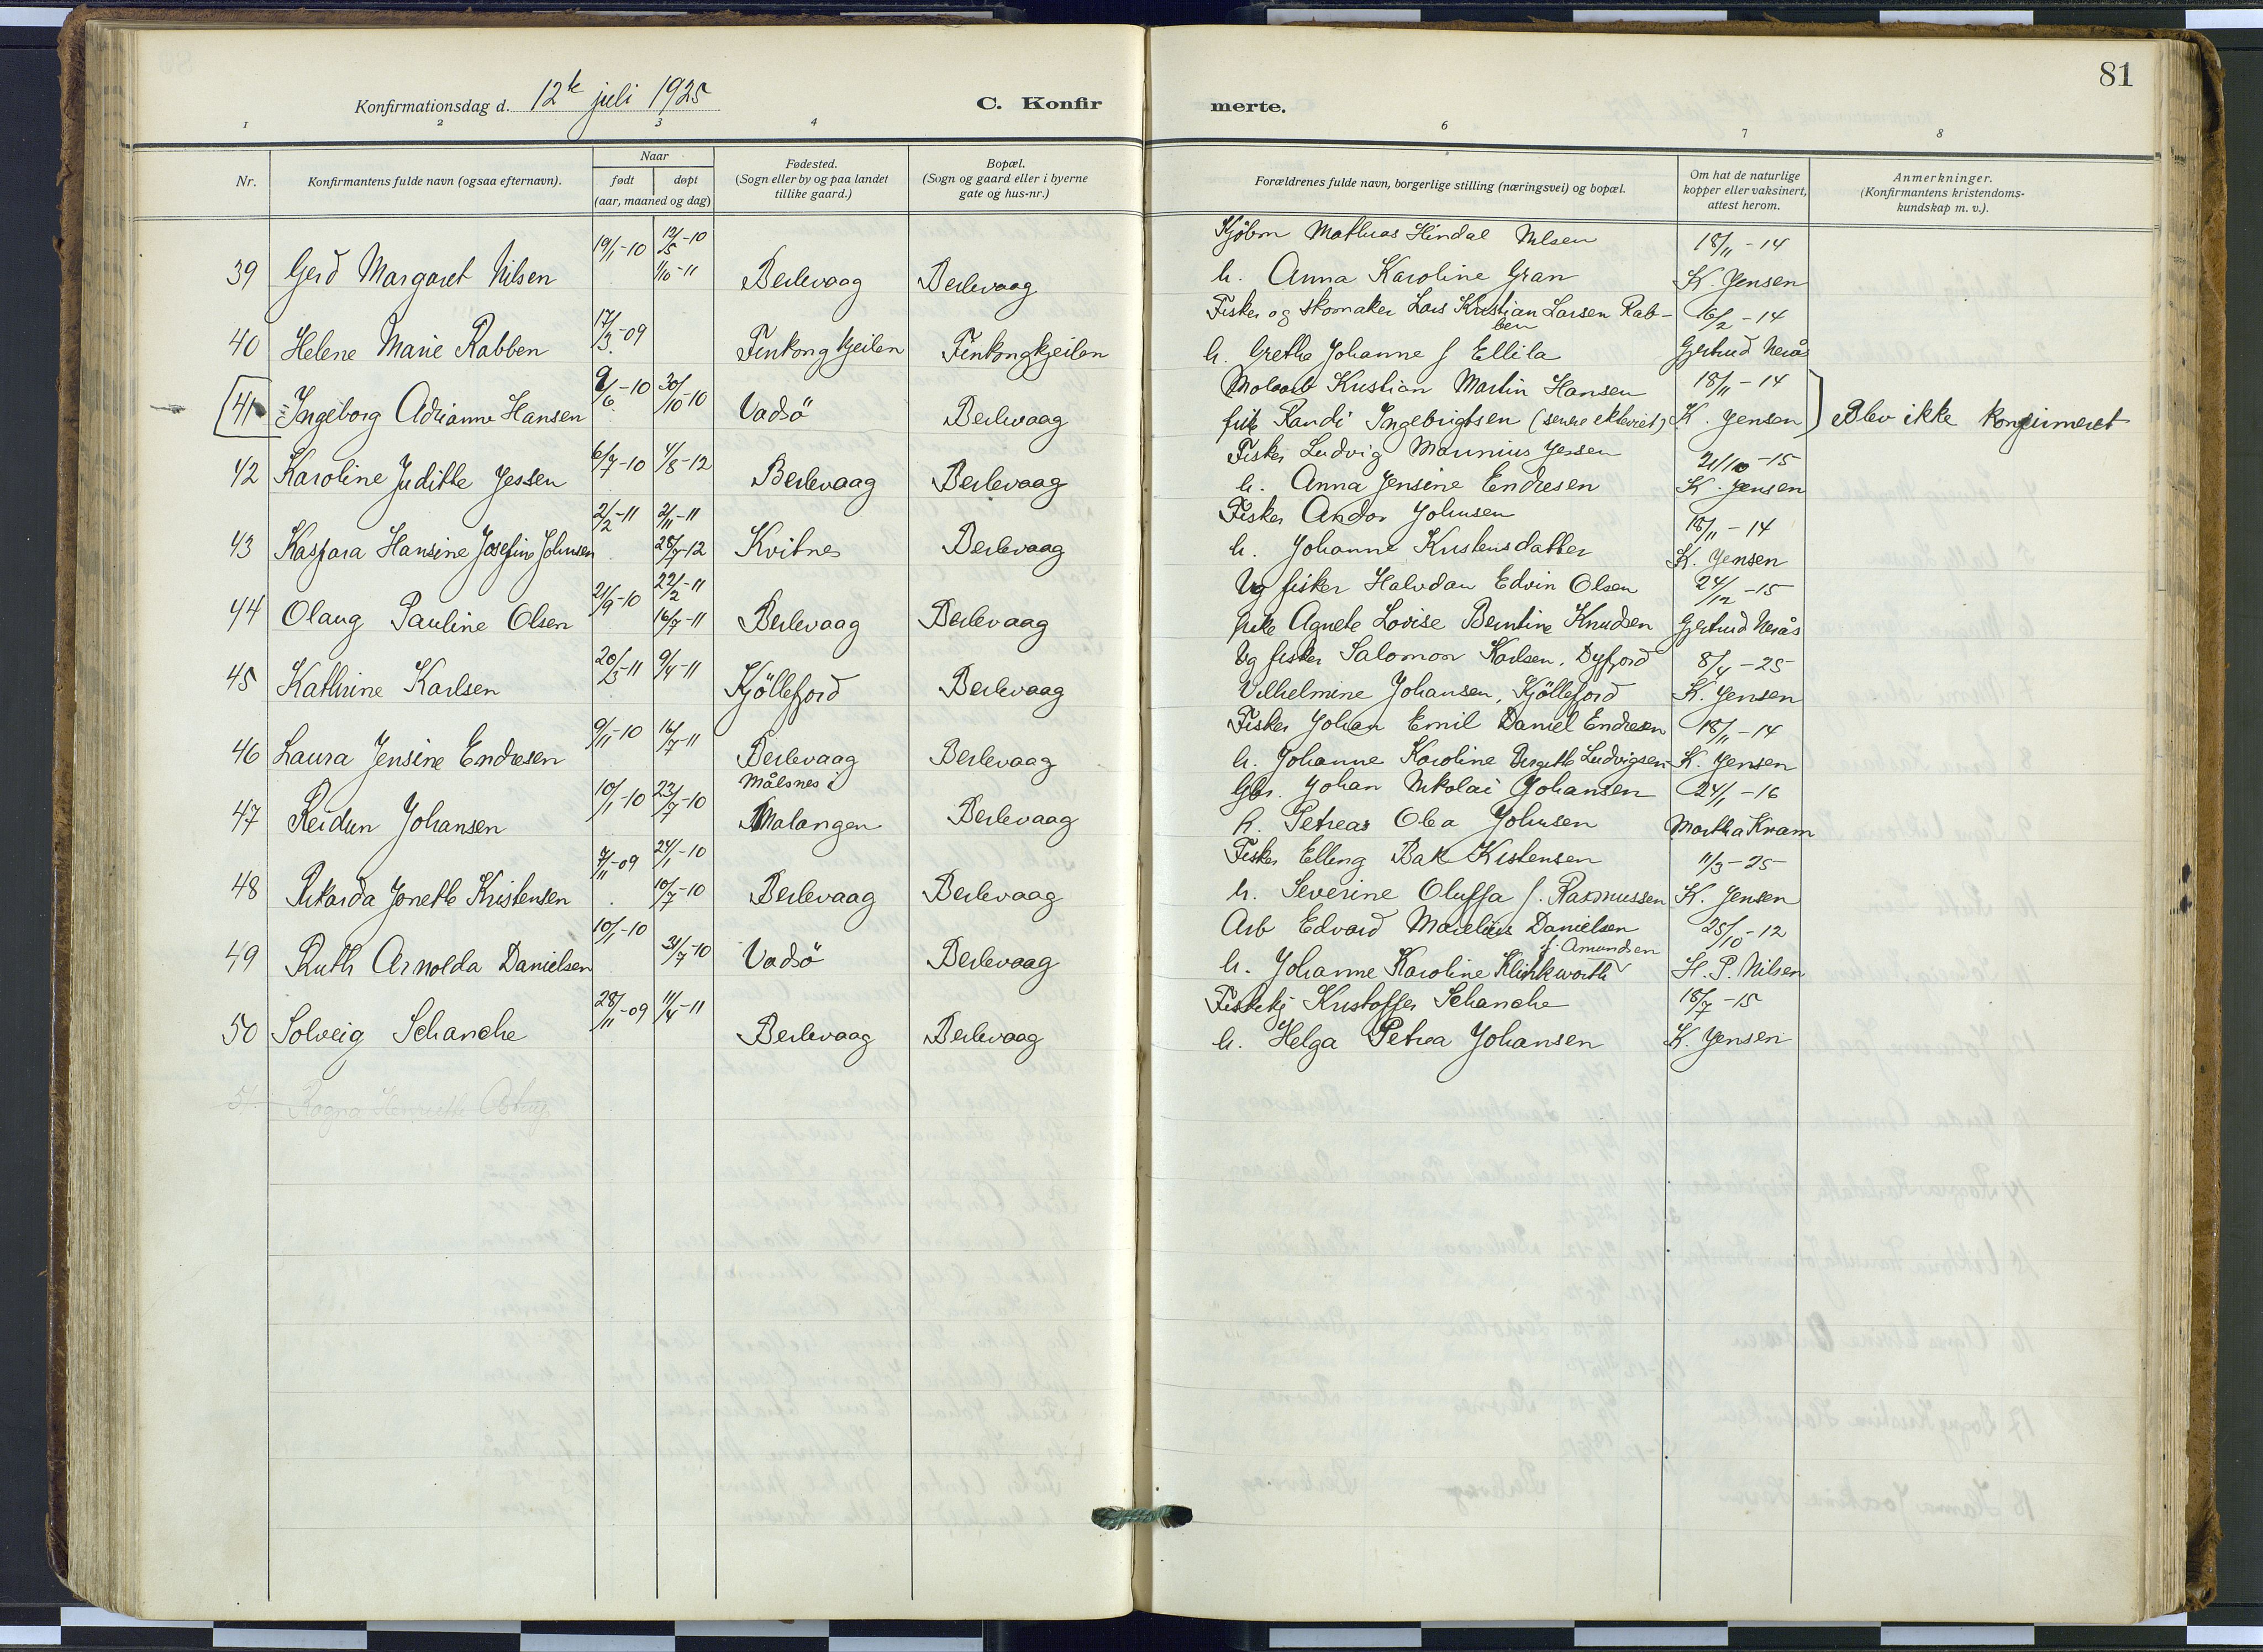 81
Konfirmationsdag d. 12te juli 1925
C. Konfirmerte.
1 2 3 4 6 7 8
Nr.
Konfirmantens fulde navn (ogsaa efternavn).
Naar
født døpt
(aar, maaned og dag)
Fødested.
(Sogn eller by og paa landet
tillike gaard.)
Bopæl.
(Sogn og gaard eller i byerne
gate og hus-nr.)
Forældrenes fulde navn, borgerlige stilling (næringsvei) og bopæl.
Om hat de naturlige
kopper eller vaksinert,
attest herom.
Anmerkninger.
(Konfirmantens kristendoms-
kundskap m. v.).
39 Gerd Margaret Nilsen 19/1-10 12/5-10 1/10-11 Berlevaag Berlevaag
Kjøbm Mathias Hindal Nilsen 18/11-14
h. Anna Karoline Gran K. Jensen
40 Helene Marie Rabben 17/3-09 Finkongkjeilen Finkongkjeilen
Fisker og skomaker Lars Kristian Larsen Rabben 16/2-14
h. Grethe Johanne f Ellila Gjertrud Nerås
41 Ingeborg Adrianne Hansen 9/6-10 30/10-10 Vadsö Berlevaag
Kristian Martin Hansen 18/11-14
Randi Ingebrigtsen K. Jensen Blev ikke konfirmeret
42 Karoline Judithe Jessen 6/7-10 4/8-12 Berlevaag Berlevaag
Fisker Ludvig Marinius Jessen 21/10-15
h. Anna Jensine Endresen K. Jensen
43 Kaspara Hansine Josefine Johnsen 2/2-11 2/11-11 28/7-12 Kvitnes Berlevaag
Fisker Andor Johnsen 18/11-14
h. Johanne Kristensdatter K. Jensen
44 Olaug Pauline Olsen 21/9-10 22/2-11 16/7-11 Berlevaag Berlevaag
Ug fisker Halvdan Edvin Olsen 24/12-15
pike Agnete Lovise Berntine Knudsen Gjertrud Nerås
45 Kathrine Karlsen 20/3-11 9/4-11 Kjöllefjord Berlevaag
Ug fisker Salomon Karlsen, Dyfjord 8/4-25
Vilhelmine Johansen, Kjöllefjord K. Jensen
46 Laura Jensine Endresen 9/11-10 16/7-11 Berlevaag Berlevaag
Fisker Johan Emil Daniel Endresen 18/11-14
h. Johanne Karoline Birgitte Ludvigsen K. Jensen
47 Reidun Johansen 10/1-10 23/7-10 Målsnes i Malangen Berlevaag
Gbr. Johan Nikolai Johansen 24/1-16
h. Petrea Olea Johnsen Martha Kram
48 Rikarda Jonette Kristensen 7/11-09 24/1-10 10/7-10 Berlevaag Berlevaag
Fisker Elling Bak Kristensen 11/3-25
h. Severine Oluffa f. Rasmussen K. Jensen
49 Ruth Arnolda Danielsen 10/1-10 31/7-10 Vadsö Berlevaag
Arb Edvard Marelius Danielsen 25/10-12
h. Johanne Karoline Klinkworth f. Amundsen H. P. Nilsen
50 Solveig Schanche 28/11-09 11/4-11 Berlevaag Berlevaag
Kristoffer Schanche 18/7-15
h. Helga Petrea Johansen K. Jensen
51. Ragna Henriette